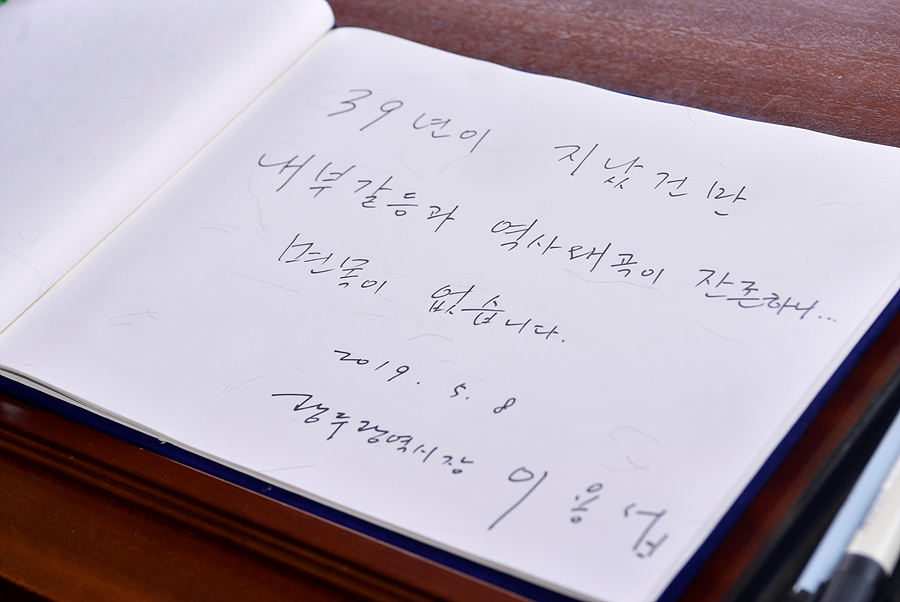 39년이 지났건만
내부갈등과 역사왜곡이 잔존하니...
면목이 없습니다.
2019. 5. 8
광주광역시장 이용섭